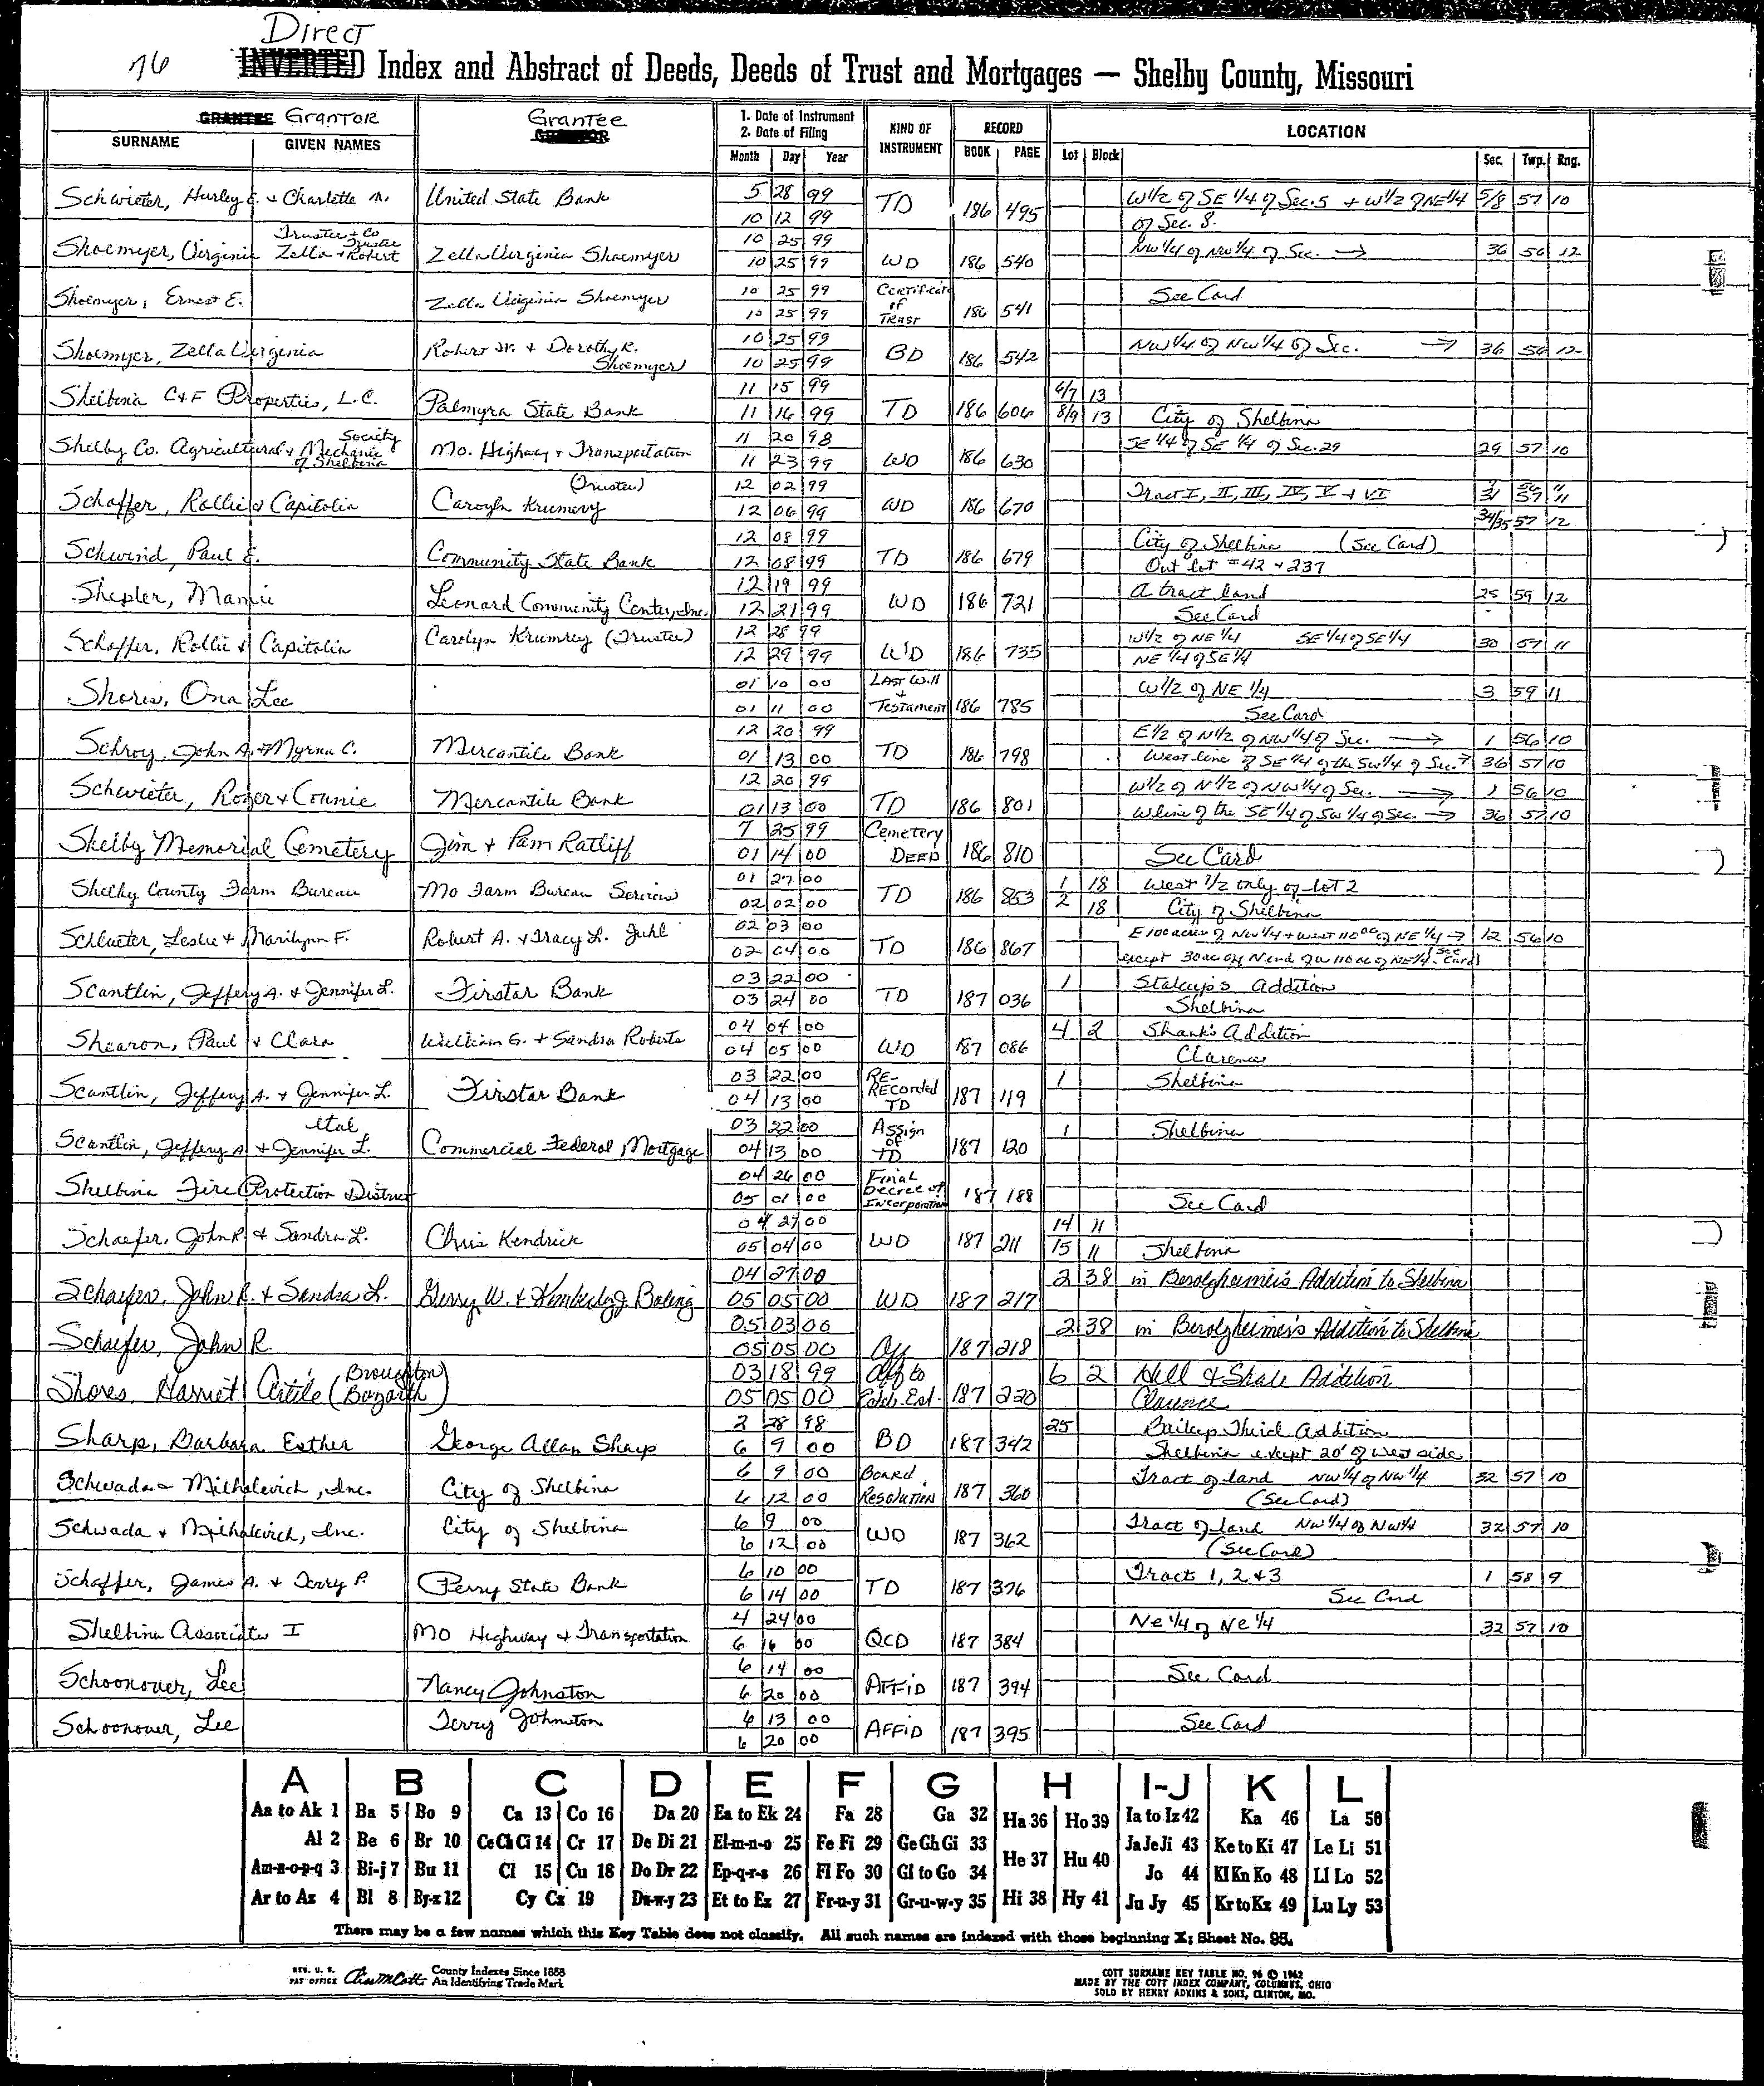 Direct
76 INVERTED Index and Abstract of Deeds, Deeds of Trust and Mortgages — Shelby County, Missouri
GRANTEE GRANTOR Grantee GRANTOR 1. Date of Instrument 2. Date of Filing KIND OF INSTRUMENT RECORD LOCATION
SURNAME GIVEN NAMES Month Day Year BOOK PAGE Lot Block Sec. Twp. Rng.
Schwieter, Hurley E. & Charlotte M. United State Bank 5 28 99 TD 186 495 W1/2 of SE 1/4 of Sec. 5 + W1/2 of NE 1/4 5/8 57 10
10 12 99 of Sec. 8.
Trustee & Co Trustee
Shoemyer, Virginia Zella & Robert Zella Virginia Shoemyer 10 25 99 WD 186 540 NW 1/4 of NW 1/4 of Sec. → 36 56 12
10 25 99
Shoemyer, Ernest E. Zella Virginia Shoemyer 10 25 99 Certificate of Trust 186 541 See Card
10 25 99
Shoemyer, Zella Virginia Robert W. & Dorothy R. Shoemyer 10 25 99 BD 186 542 NW 1/4 of NW 1/4 of Sec. → 36 56 12
10 25 99
Shelbina C&F Properties, L.C. Palmyra State Bank 11 15 99 TD 186 606 6/7 13
11 16 99 8/9 13 City of Shelbina
Shelby Co. Agricultural & Mechanic Society of Shelbina Mo. Highway & Transportation 11 20 98 WD 186 630 SE 1/4 of SE 1/4 of Sec. 29 29 57 10
11 23 99
Schaffer, Rollie & Capitolia Carolyn Krumrey (Trustee) 12 02 99 WD 186 670 Tract I, II, III, IV, V & VI 31 57 11
12 06 99 34/35 57 12
Schwind, Paul E. Community State Bank 12 08 99 TD 186 679 City of Shelbina (See Card)
12 08 99 Out Lot #42 & 237
Shepler, Mamie Leonard Community Center, Inc. 12 19 99 WD 186 721 A tract land 25 59 12
12 21 99 See Card
Schaffer, Rollie & Capitolia Carolyn Krumrey (Trustee) 12 28 99 WD 186 735 W1/2 of NE 1/4 SE 1/4 of SE 1/4 30 57 11
12 29 99 NE 1/4 of SE 1/4
Shores, Ona Lee 01 10 00 Last Will & Testament 186 785 W1/2 of NE 1/4 3 59 11
01 11 00 See Card
Schroy, John A. & Myrna C. Mercantile Bank 12 20 99 TD 186 798 E1/2 of N1/2 of NW 1/4 of Sec. → 1 56 10
01 13 00 West line of SE 1/4 of the SW 1/4 of Sec. → 36 57 10
Schwieter, Roger & Connie Mercantile Bank 12 20 99 TD 186 801 W1/2 of N1/2 of NW 1/4 of Sec. → 1 56 10
01 13 00 W line of the SE 1/4 of SW 1/4 of Sec. → 36 57 10
Shelby Memorial Cemetery Jim & Pam Ratliff 7 25 99 Cemetery DEED 186 810 See Card
01 14 00
Shelby County Farm Bureau Mo Farm Bureau Services 01 27 00 TD 186 853 1 18 West 1/2 only of Lot 2
02 02 00 2 18 City of Shelbina
Schlueter, Leslie & Marilynn F. Robert A. & Tracy L. Juhl 02 03 00 TD 186 867 E 100 acres of NW 1/4 + West 110 ac of NE 1/4 → 12 56 10
02 04 00 except 30 ac off N end of W 110 ac of NE 1/4. (See Card)
Scantlin, Jeffery A. & Jennifer L. Firstar Bank 03 22 00 TD 187 036 1 Stalcup's Addition
03 24 00 Shelbina
Shearon, Paul & Clara William G. & Sandra Roberts 04 04 00 WD 187 086 4 2 Shank's Addition
04 05 00 Clarence
Scantlin, Jeffery A. & Jennifer L. Firstar Bank 03 22 00 RE-RECorded TD 187 119 1 Shelbina
04 13 00
Scantlin, Jeffery A. & Jennifer L. etal Commercial Federal Mortgage 03 22 00 Assign of TD 187 120 1 Shelbina
04 13 00
Shelbina Fire Protection District 04 26 00 Final Decree of Incorporation 187 188 See Card
05 01 00
Schaefer, John R. & Sandra L. Chris Kendrick 04 27 00 WD 187 211 14 11
05 04 00 15 11 Shelbina
Schaefer, John R. & Sandra L. Gerry W. & Kimberly J. Baling 04 27 00 WD 187 217 2 38 in Berolzheimer's Addition to Shelbina
05 05 00
Schaefer, John R. 05 03 00 Aff 187 218 2 38 in Berolzheimer's Addition to Shelbina
05 05 00
Shores, Harriet Artile (Broughton) (Bozarth) 03 18 99 Aff to Estab. Est. 187 220 6 2 Hill & Shale Addition
05 05 00 Clarence
Sharp, Barbara Esther George Allan Sharp 2 28 98 BD 187 342 25 Baileys Third Addition
6 9 00 Shelbina except 20' of west side
Schwada & Mihalevich, Inc. City of Shelbina 6 9 00 Board Resolution 187 360 Tract of land NW 1/4 of NW 1/4 32 57 10
6 12 00 (See Card)
Schwada & Mihalevich, Inc. City of Shelbina 6 9 00 WD 187 362 Tract of land NW 1/4 of NW 1/4 32 57 10
6 12 00 (See Card)
Schaffer, James A. & Terry P. Perry State Bank 6 10 00 TD 187 376 Tract 1, 2 & 3 1 58 9
6 14 00 See Card
Shelbina Associates I MO Highway & Transportation 4 24 00 QCD 187 384 NE 1/4 of NE 1/4 32 57 10
6 16 00
Schoonover, Lee Nancy Johnston 6 14 00 AFFID 187 394 See Card
6 20 00
Schoonover, Lee Terry Johnston 6 13 00 AFFID 187 395 See Card
6 20 00
A B C D E F G H I-J K L
Aa to Ak 1 Ba 5 Bo 9 Ca 13 Co 16 Da 20 Ea to Ek 24 Fa 28 Ga 32 Ha 36 Ho 39 Ia to Iz 42 Ka 46 La 50
Al 2 Be 6 Br 10 Ce Ch Ci 14 Cr 17 De Di 21 El-m-n-o 25 Fe Fi 29 Ge Gh Gi 33 He 37 Hu 40 Ja Je Ji 43 Ke to Ki 47 Le Li 51
Am-n-o-p-q 3 Bi-j 7 Bu 11 Cl 15 Cu 18 Do Dr 22 Ep-q-r-s 26 Fl Fo 30 Gl to Go 34 Hi 38 Hy 41 Jo 44 Kl Kn Ko 48 Ll Lo 52
Ar to Az 4 Bl 8 By-z 12 Cy Cz 19 Du-w-y 23 Et to Ez 27 Fr-u-y 31 Gr-u-w-y 35 Ju Jy 45 Kr to Kz 49 Lu Ly 53
There may be a few names which this Key Table does not classify. All such names are indexed with those beginning X; Sheet No. 95.
REG. U. S. PAT OFFICE County Indexes Since 1888 An Identifying Trade Mark
COTT SURNAME KEY TABLE NO. 96 © 1962
MADE BY THE COTT INDEX COMPANY, COLUMBUS, OHIO
SOLD BY HENRY ADKINS & SONS, CLINTON, MO.